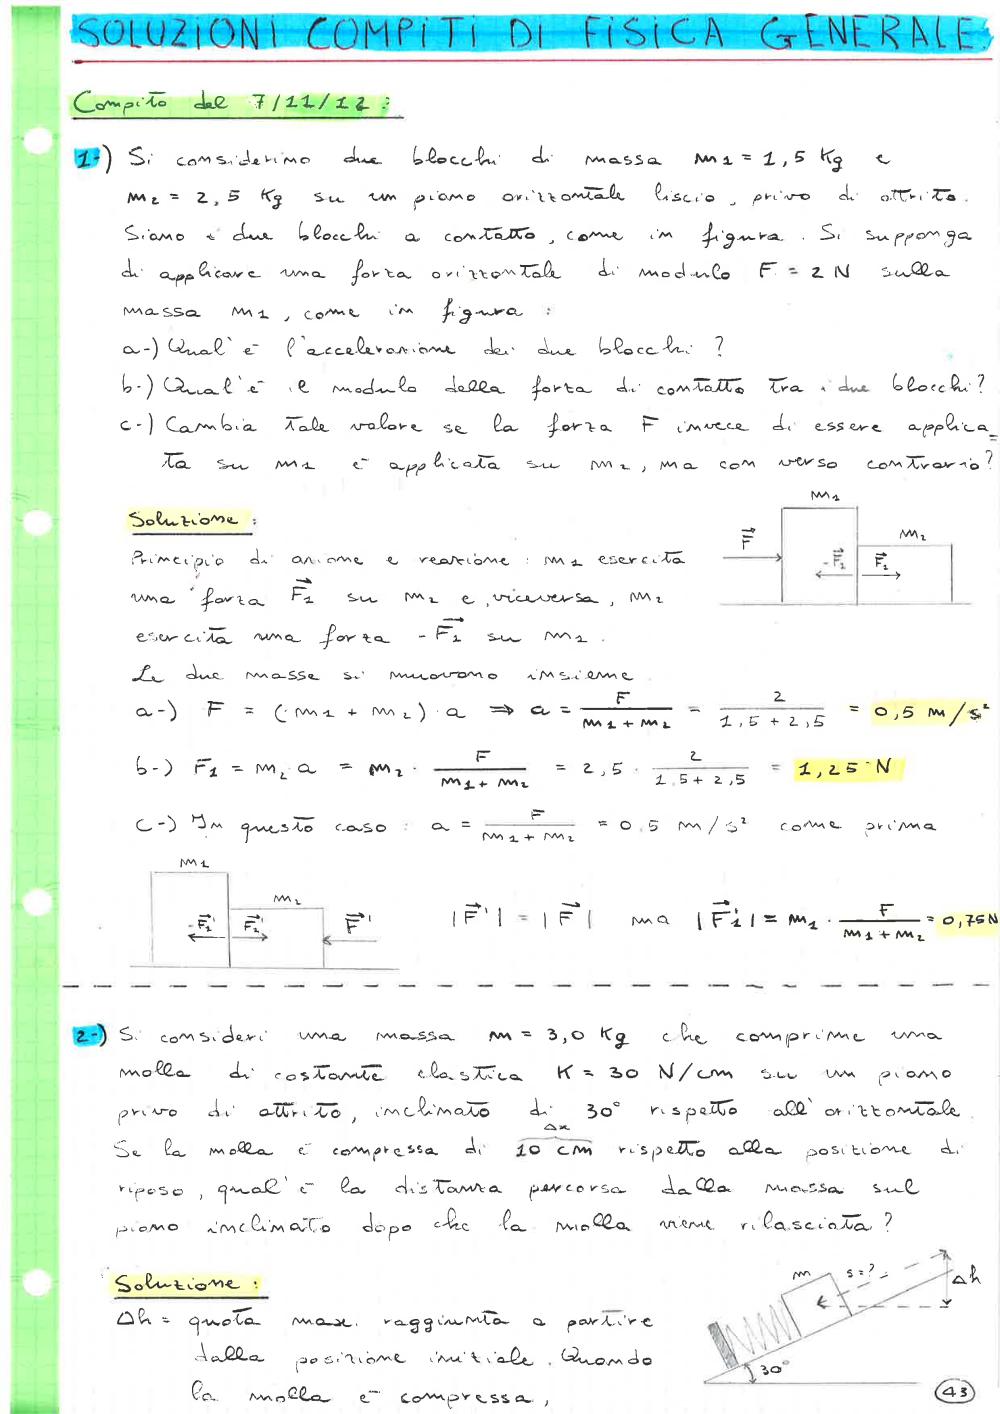 SOLUZIONI COMPITI DI FISICA GENERALE
Compito del 7/11/12:
1-) Si considerino due blocchi di massa m1 = 1,5 Kg e
m2 = 2,5 Kg su un piano orizzontale liscio, privo di attrito.
Siano i due blocchi a contatto, come in figura. Si supponga
di applicare una forza orizzontale di modulo F = 2 N sulla
massa m1, come in figura:
a-) Qual'è l'accelerazione dei due blocchi?
b-) Qual'è il modulo della forza di contatto tra i due blocchi?
c-) Cambia tale valore se la forza F invece di essere applica=
ta su m1 è applicata su m2, ma con verso contrario?
Soluzione:
Principio di azione e reazione: m1 esercita
una forza F⃗1 su m2 e, viceversa, m2
esercita una forza -F⃗1 su m1.
Le due masse si muovono insieme
m1
m2
F⃗
-F⃗1 F⃗1
a-) F = (m1 + m2) · a ⇒ a = F/(m1 + m2) = 2/(1,5 + 2,5) = 0,5 m/s²
b-) F1 = m2 a = m2 · F/(m1 + m2) = 2,5 · 2/(1,5 + 2,5) = 1,25 N
c-) In questo caso: a = F/(m1 + m2) = 0,5 m/s² come prima
m1
m2
-F⃗1' F⃗1' F⃗'
|F⃗'| = |F⃗| ma |F⃗1'| = m1 · F/(m1 + m2) = 0,75 N
2-) Si consideri una massa m = 3,0 Kg che comprime una
molla di costante elastica K = 30 N/cm su un piano
privo di attrito, inclinato di 30° rispetto all'orizzontale.
Δx
Se la molla è compressa di 10 cm rispetto alla posizione di
riposo, qual'è la distanza percorsa dalla massa sul
piano inclinato dopo che la molla viene rilasciata?
Soluzione:
Δh = quota max. raggiunta a partire
dalla posizione iniziale. Quando
la molla è compressa,
m
s=?
Δh
30°
43